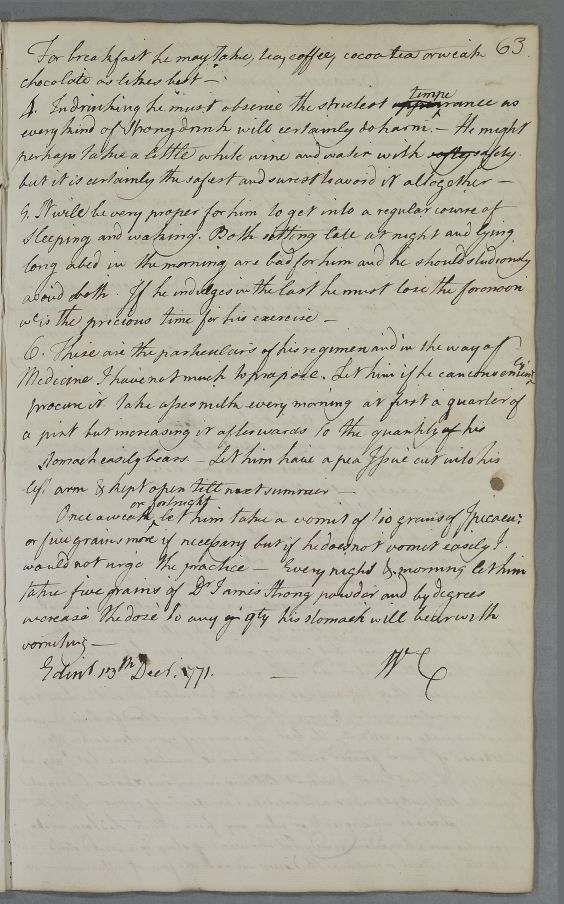 63
For breakfast he may take, tea, coffee, cocoa tea or weak
chocolate as likes best –
4. In drinking he must observe the strictest temperance as
every kind of Strong drink will certainly do harm. – He might
perhaps take a little white wine and water with safety safety.
but it is certainly the safest and surest to avoid it altogether –
5. It will be very proper for him to get into a regular course of
sleeping and waking. Both sitting late at night and lying
long abed in the morning are bad for him and he should studiously
avoid both. If he indulges in the last he must lose the forenoon
wc. is the precious time for his exercise –
6. These are the particulars of his regimen and in the way of
Medicine I have not much to propose. Let him if he can conveniently
procure it take asses milk every morning at first a quarter of
a pint but increasing it afterwards to the quantity of his
stomach easily bears – Let him have a pea Issue cut into his
left arm & kept open till next summer –
Once a week or fortnight let him take a vomit of 10 grains of Ipecacu:
or five grains more if necessary but if he does not vomit easily I
would not urge the practice – Every night & morning let him
take five grains of Dr. James Strong powder and by degrees
increase the dose to any qty his stomach will bear with
vomiting –
Edinr. 13th Decr. 1771. – WC